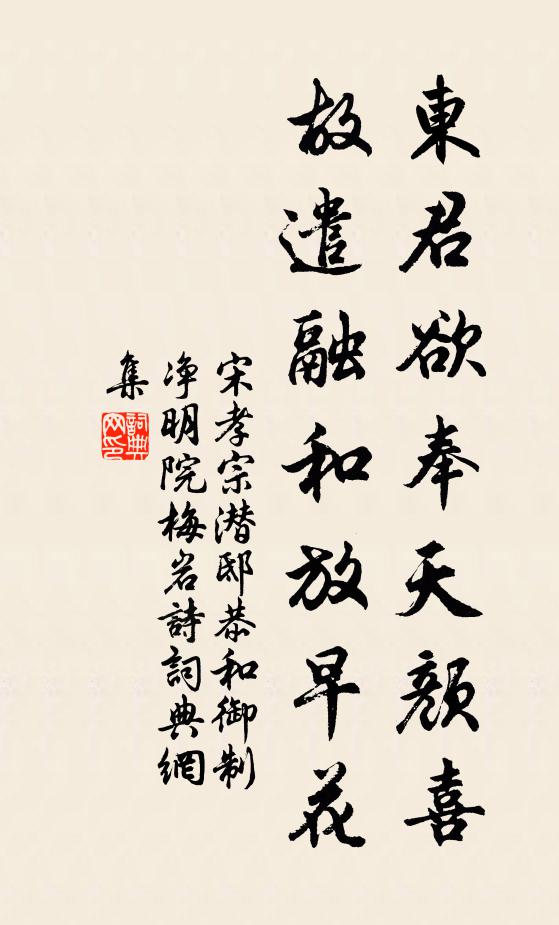 東君欲奉天顏喜
故遣融和放早花
宋孝宗潜邸恭和御制
净明院梅岩詩詞典網
集
詞典網印